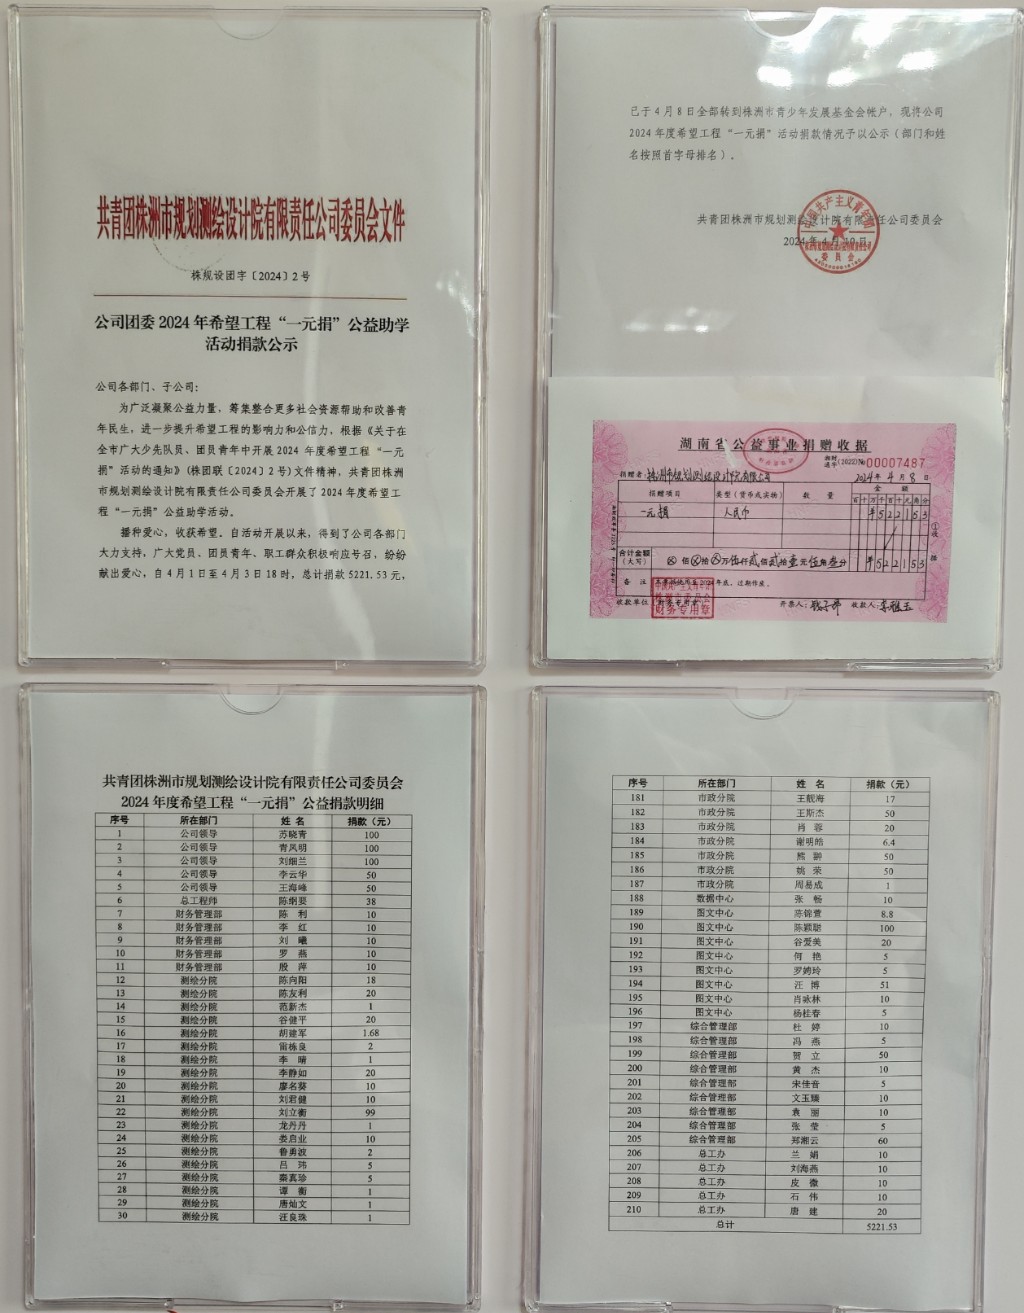 共青团株洲市规划测绘设计院有限责任公司委员会文件
株规设团字〔2024〕2号
公司团委 2024 年希望工程“一元捐”公益助学
活动捐款公示
公司各部门、子公司:
为广泛凝聚公益力量，筹集整合更多社会资源帮助和改善青
年民生，进一步提升希望工程的影响力和公信力，根据《关于在
全市广大少先队员、团员青年中开展 2024 年度希望工程“一元
捐”活动的通知》(株团联〔2024〕2 号)文件精神，共青团株洲
市规划测绘设计院有限责任公司委员会开展了 2024 年度希望工
程“一元捐”公益助学活动。
播种爱心，收获希望。自活动开展以来，得到了公司各部门
大力支持，广大党员、团员青年、职工群众积极响应号召，纷纷
献出爱心，自 4 月 1 日至 4 月 3 日 18 时，总计捐款 5221.53 元，
已于 4 月 8 日全部转到株洲市青少年发展基金会帐户，现将公司
2024 年度希望工程“一元捐”活动捐款情况予以公示（部门和姓
名按照首字母排名）。
共青团株洲市规划测绘设计院有限责任公司委员会
2024 年 4 月 10 日
湖南省公益事业捐赠收据
(2022) No 00007487
捐赠者: 株洲市规划测绘设计院有限公司 2024年 4 月 8 日
捐赠项目 类型（货币或实物） 数 量 金 额
百 十 万 千 百 十 元 角 分
一元捐 人民币 ¥ 5 2 2 1 5 3
合计金额（大写） ⊗ 佰 ⊗ 拾 ⊗ 万 伍 仟 贰 佰 贰 拾 壹 元 伍 角 叁 分 ¥ 5 2 2 1 5 3
备 注 2024年底，过期作废。
收款单位: 财务专用章 开票人: 收款人:
共青团株洲市规划测绘设计院有限责任公司委员会
2024 年度希望工程“一元捐”公益捐款明细
序号 所在部门 姓 名 捐款（元）
1 公司领导 苏晓青 100
2 公司领导 青风明 100
3 公司领导 刘细兰 100
4 公司领导 李云华 50
5 公司领导 王海峰 50
6 总工程师 陈纲要 38
7 财务管理部 陈 利 10
8 财务管理部 李 红 10
9 财务管理部 刘 曦 10
10 财务管理部 罗 燕 10
11 财务管理部 殷 萍 10
12 测绘分院 陈向阳 18
13 测绘分院 陈友利 20
14 测绘分院 范新杰 1
15 测绘分院 谷健平 20
16 测绘分院 胡建军 1.68
17 测绘分院 雷栋良 2
18 测绘分院 李 晴 1
19 测绘分院 李静如 20
20 测绘分院 廖名葵 10
21 测绘分院 刘君健 10
22 测绘分院 刘立衡 99
23 测绘分院 龙丹丹 1
24 测绘分院 娄启业 10
25 测绘分院 鲁勇波 2
26 测绘分院 吕 玮 5
27 测绘分院 秦真珍 5
28 测绘分院 谭 衡 1
29 测绘分院 唐灿文 1
30 测绘分院 汪良珠 1
序号 所在部门 姓 名 捐款（元）
181 市政分院 王靓海 17
182 市政分院 王斯杰 50
183 市政分院 肖 蓉 20
184 市政分院 谢明皓 6.4
185 市政分院 熊 翀 50
186 市政分院 姚 荣 50
187 市政分院 周易成 1
188 数据中心 张 畅 10
189 图文中心 陈锦萱 8.8
190 图文中心 陈颖聪 100
191 图文中心 谷爱美 20
192 图文中心 何 艳 5
193 图文中心 罗娉玲 5
194 图文中心 汪 博 51
195 图文中心 肖咏林 10
196 图文中心 杨桂春 5
197 综合管理部 杜 婷 10
198 综合管理部 冯 燕 5
199 综合管理部 贺 立 50
200 综合管理部 黄 杰 10
201 综合管理部 宋佳音 5
202 综合管理部 文玉臻 10
203 综合管理部 袁 丽 10
204 综合管理部 张 莹 5
205 综合管理部 郑湘云 60
206 总工办 兰 娟 10
207 总工办 刘海燕 10
208 总工办 皮 微 10
209 总工办 石 伟 10
210 总工办 唐 建 20
总计 5221.53